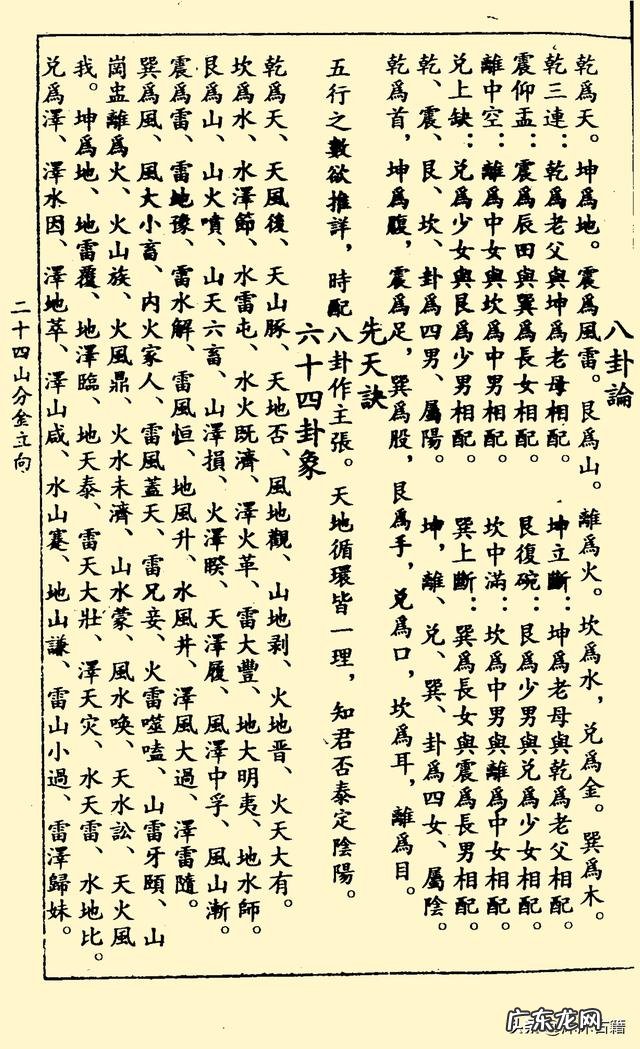 八卦論
乾爲天。坤爲地。震爲風雷。艮爲山。離爲火。坎爲水，兌爲金。巽爲木。
乾三連：乾爲老父與坤爲老母相配。　坤立斷：坤爲老母與乾爲老父相配。
震仰盂：震爲辰田與巽爲長女相配。　艮復碗：艮爲少男與兌爲少女相配。
離中空：離爲中女與坎爲中男相配。　坎中滿：坎爲中男與離爲中女相配。
兌上缺：兌爲少女與艮爲少男相配。　巽上斷：巽爲長女與震爲長男相配。
乾、震、艮、坎、卦爲四男、屬陽。　坤，離、兌、巽、卦爲四女、屬陰。
乾爲首，坤爲腹，震爲足，巽爲股，艮爲手，兌爲口，坎爲耳，離爲目。
先天訣
五行之數欲推詳，時配八卦作主張。天地循環皆一理，知君否泰定陰陽。
六十四卦象
乾爲天、天風後、天山豚、天地否、風地觀、山地剥、火地晋、火天大有。
坎爲水、水澤節、水雷屯、水火既濟、澤火革、雷大豐、地大明夷、地水師。
艮爲山、山火噴、山天六畜、山澤損、火澤睽、天澤履、風澤中孚、風山漸。
震爲雷、雷地豫、雷水解、雷風恒、地風升、水風井、澤風大過、澤雷隨。
巽爲風、風大小畜、内火家人、雷風蓋天、雷兄妾、火雷噬嗑、山雷牙頤、山
崗盅離爲火、火山族、火風鼎、火水未濟、山水蒙、風水唤、天水訟、天火風
我。坤爲地、地雷覆、地澤臨、地天泰、雷天大壯、澤天灾、水天雷、水地比。
兌爲澤、澤水因、澤地萃、澤山咸、水山蹇、地山謙、雷山小過、雷澤歸妹。
二十四山分金立向
广东龙网